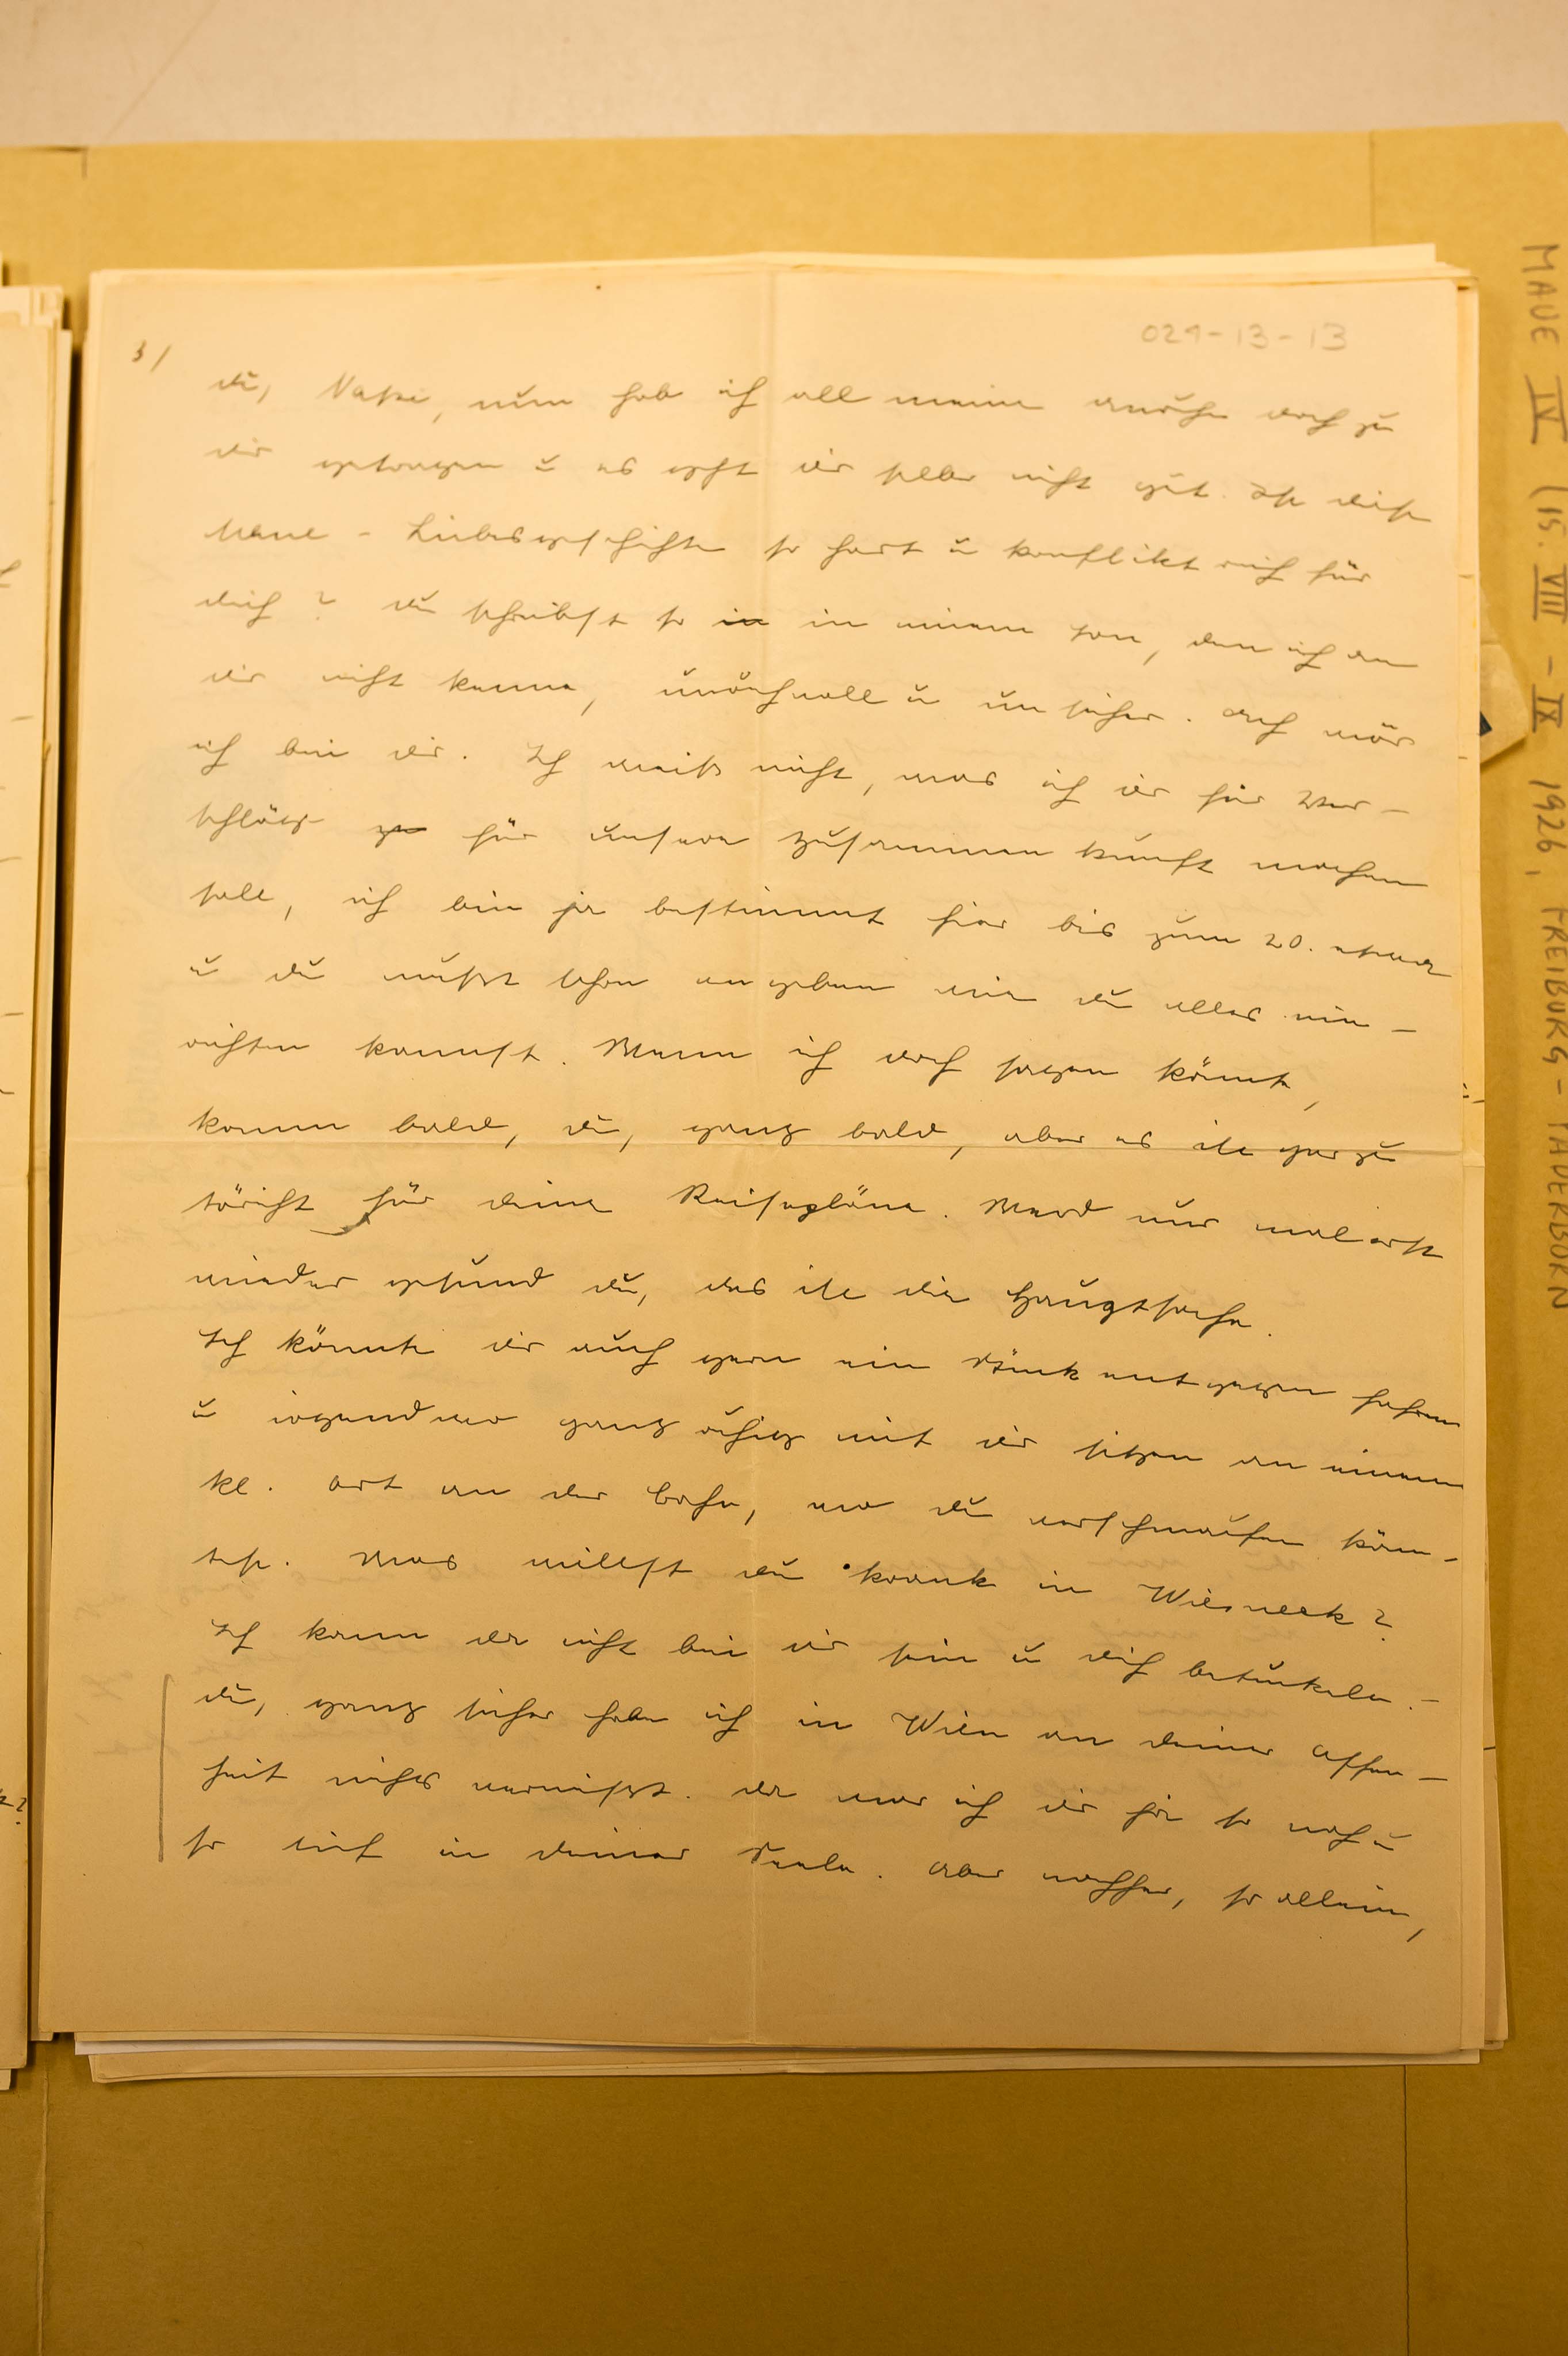 029-13-13
3/
du, Naki, nun hab ich all meine Unruhe doch zu
dir getragen u es geht dir selber nicht gut. Ist diese
Maue-Liebesgeschichte so hart u konfliktreich für
dich? du schreibst so in in einem Ton, den ich an
dir nicht kenne, unruhvoll u unsicher. Ach wär
ich bei dir. Ich weiß nicht, was ich dir für Vor-
schläge zu für unsere Zusammenkunft machen
soll, ich bin ja bestimmt hier bis zum 20. etwa
u du mußt schon angeben wie du alles ein-
richten kannst. Wenn ich doch sagen könnt,
komm bald, du, ganz bald, aber es ist gar zu
töricht für deine Reisepläne. Werd nur mal erst
wieder gesund du, das ist die Hauptsache.
Ich könnte dir auch gern ein Stück entgegen fahren
u irgendwo ganz ruhig mit dir sitzen an einem
kl. Ort an der Bahn, wo du verschnaufen könn-
test. Was willst du krank in Wiesneck?
Ich kann da nicht bei dir sein u dich betuckeln. –
du, ganz sicher habe ich in Wien an deiner Offen-
heit nichts vermißt. da war ich dir ja so nah u
so tief in deiner Seele. Aber nachher, so allein,
MAUE IV (15. VIII - IX 1926, FREIBURG - PADERBORN